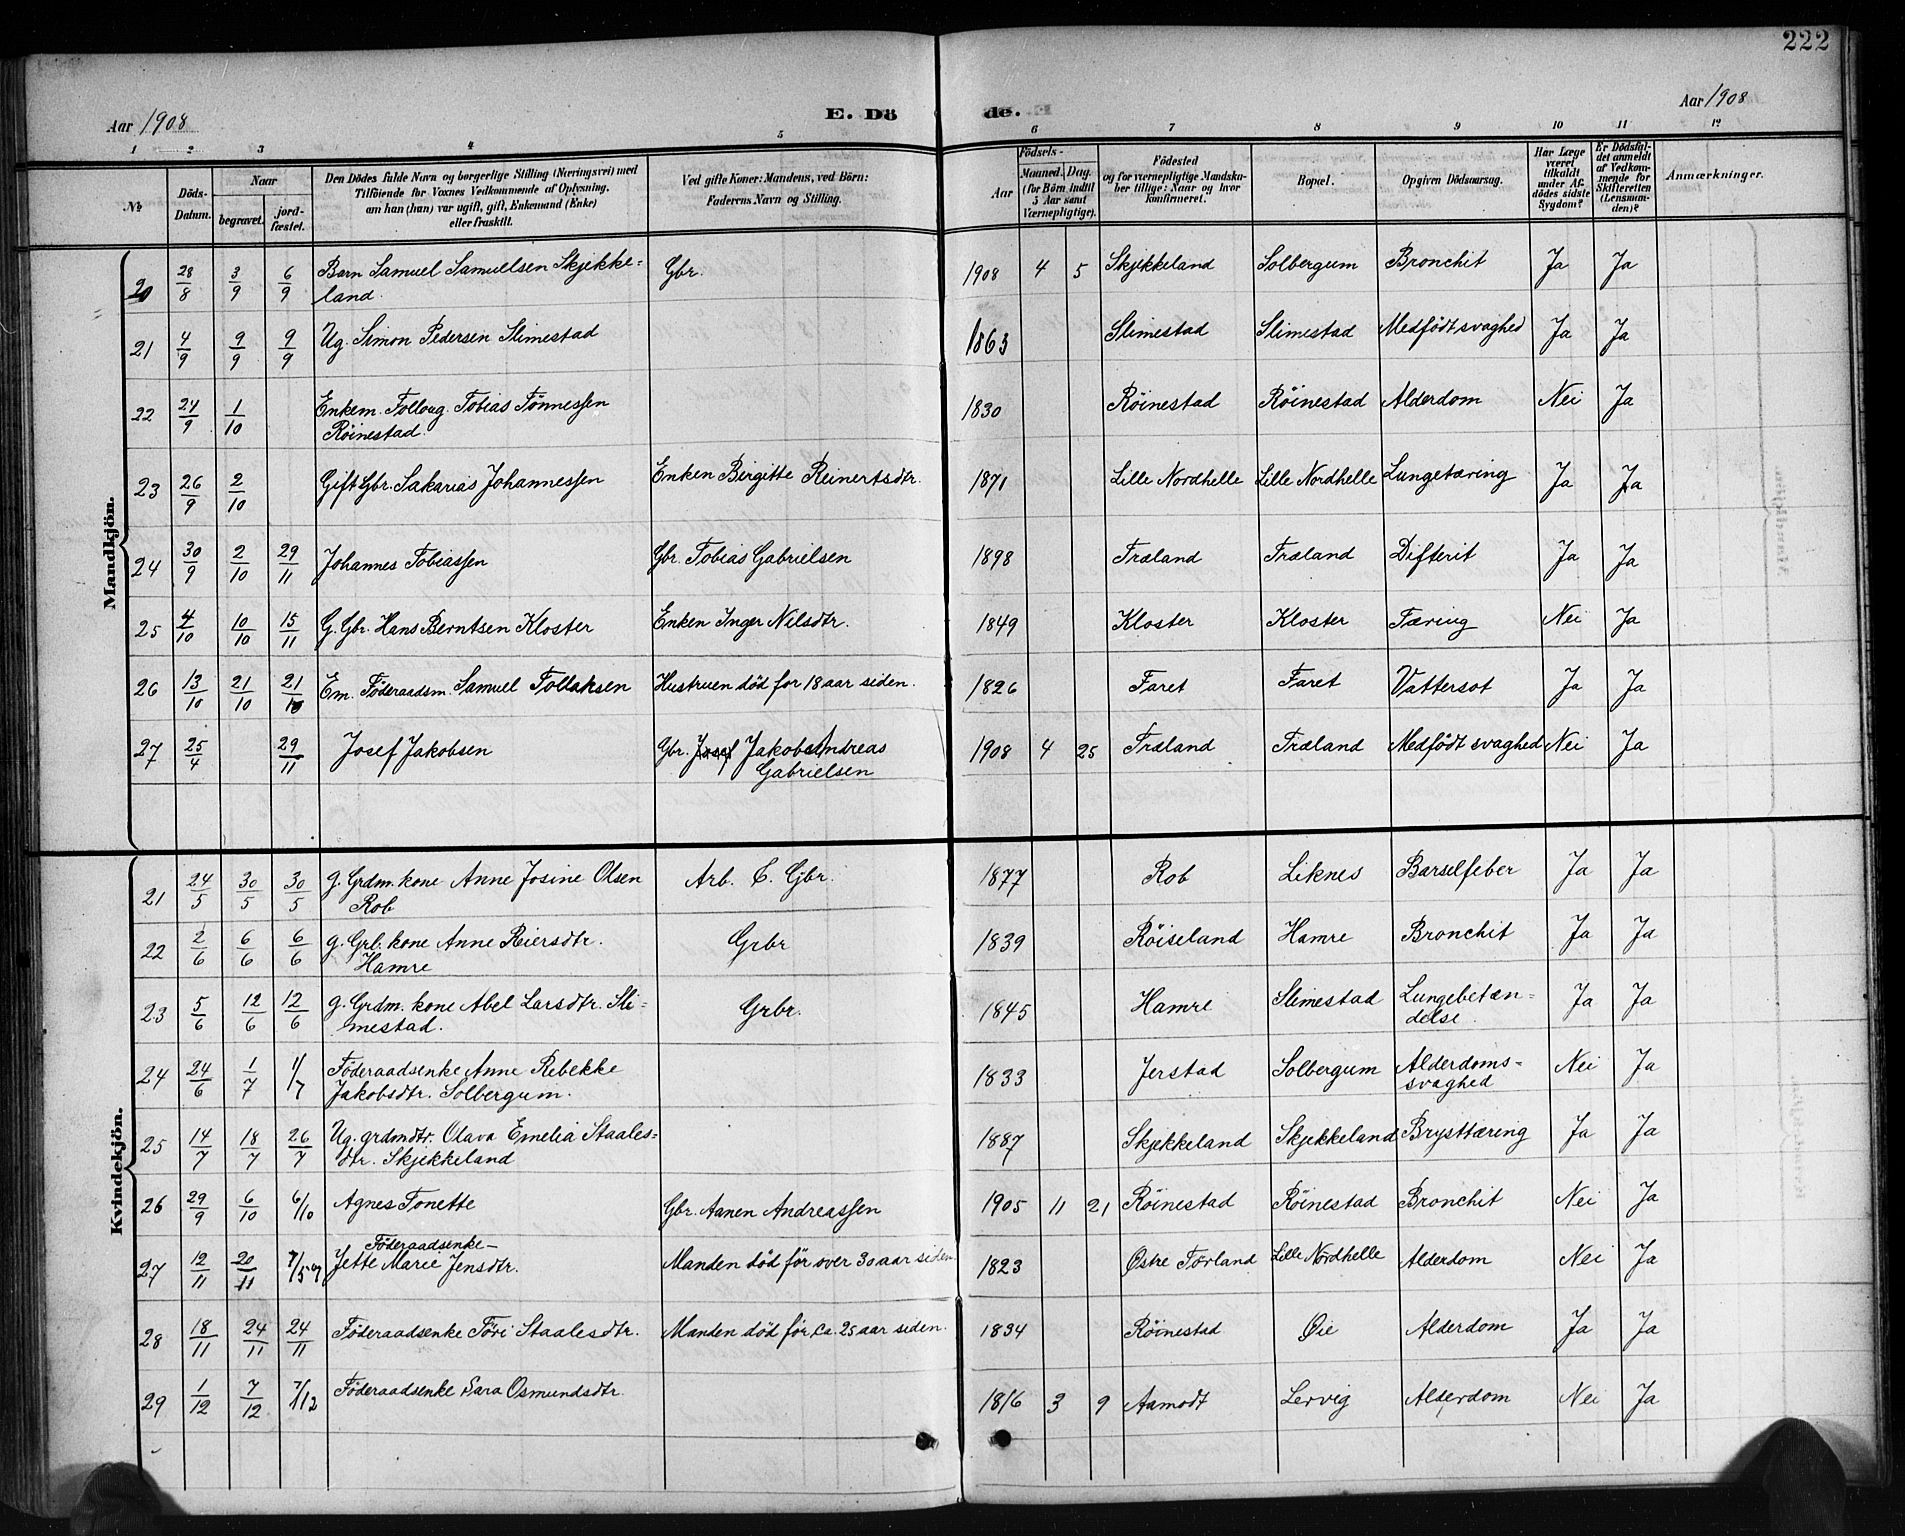 222
Aar 1908 E. Dö de. Aar 1908
1 2 3 4 5 6 7 8 9 10 11 12
№
Döds-Datum.
Naar
begravet.
jord-fæstet.
Den Dödes fulde Navn og borgerlige Stilling (Næringsvei) med
Tilföiende for Voxnes Vedkommende af Oplysning,
om han (hun) var ugift, gift, Enkemand (Enke)
eller fraskilt.
Ved gifte Koner: Mandens, ved Börn:
Faderens Navn og Stilling.
Födsels-
Aar
Maaned. Dag.
(for Börn indtil
5 Aar samt
Værnepligtige).
Födested
og for værnepligtige Mandska-
ber tillige: Naar og hvor
konfirmeret.
Bopæl.
Opgiven Dödsaarsag.
Har Læge
været
tilkaldt
under Af-
dödes sidste
Sygdom?
Er Dödsfal-
det anmeldt
af Vedkom-
mende for
Skifteretten
(Lensman-
den)?
Anmærkninger.
Mandkjön.
20 28/8 3/9 6/9 Barn Samuel Samuelsen Skjekke= Gbr. 1908 4 5 Skjekkeland Solbergum Bronchit Ja Ja
land.
21 4/9 9/9 9/9 Ug. Simon Pedersen Slimestad 1863 Slimestad Slimestad Medfödt svaghed Ja Ja
22 24/9 1/10 Enkem. Folloug. Tobias Tönnessen 1830 Röinestad Röinestad Alderdom Nei Ja
Röinestad.
23 26/9 2/10 Gift Gbr. Sakarias Johannessen Enken Birgitte Reinertsdtr. 1871 Lille Nordhelle Lille Nordhelle Lungetæring Ja Ja
24 30/9 2/10 29/11 Johannes Tobiassen Gbr. Tobias Gabrielsen 1898 Træland Træland Difterit Ja Ja
25 4/10 10/10 15/11 G. Gbr. Hans Berntsen Kloster Enken Inger Nilsdtr. 1849 Kloster Kloster Tæring Nei Ja
26 13/10 21/10 21/10 Em. Föderaadsm. Samuel Tollaksen Hustruen död for 18 aar siden. 1826 Faret Faret Vattersot Ja Ja
27 25/4 29/11 Josef Jakobsen Gbr. Josef Jakob Andreas 1908 4 25 Træland Træland Medfödt svaghed Nei Ja
Gabrielsen
Kvindekjön.
21 24/5 30/5 30/5 g. Grdm. kone Anne Josine Olsen Arb. C. Gbr. 1877 Rob Liknes Barselfeber Ja Ja
Rob
22 2/6 6/6 6/6 g. Grb. kone Anne Reiersdtr. Grbr 1839 Röiseland Hamre Bronchit Ja Ja
Hamre
23 5/6 12/6 12/6 g. Grdm. kone Abel Larsdtr. Sli= Grbr. 1845 Hamre Slimestad Lungebetæn- Ja Ja
mestad. delse.
24 24/6 1/7 1/7 Föderaadsenke Anne Rebekke 1833 Jerstad Solbergum Alderdoms- Nei Ja
Jakobsdtr. Solbergum. svaghed
25 14/7 18/7 26/7 Ug. grdmdtr. Olava Emelia Staales= 1887 Skjekkeland Skjekkeland Brysttæring Ja Ja
dtr. Skjekkeland
26 29/9 6/10 6/10 Agnes Tonette Gbr. Aanen Andreassen 1905 11 21 Röinestad Röinestad Bronchit Nei Ja
Föderaadsenke-
27 12/11 20/11 Jette Marie Jensdtr. Manden död för over 30 aar siden. 1823 Østre Förland Lille Nordhelle Alderdom Nei Ja
28 18/11 24/11 24/11 Föderaadsenke Töri Staalesdtr. Manden död för ca. 25 aar siden. 1834 Röinestad Øie Alderdom Ja Ja
29 1/12 7/12 7/12 Föderaadsenke Sara Osmundsdtr. 1816 3 9 Aamodt Lervig Alderdom Nei Ja